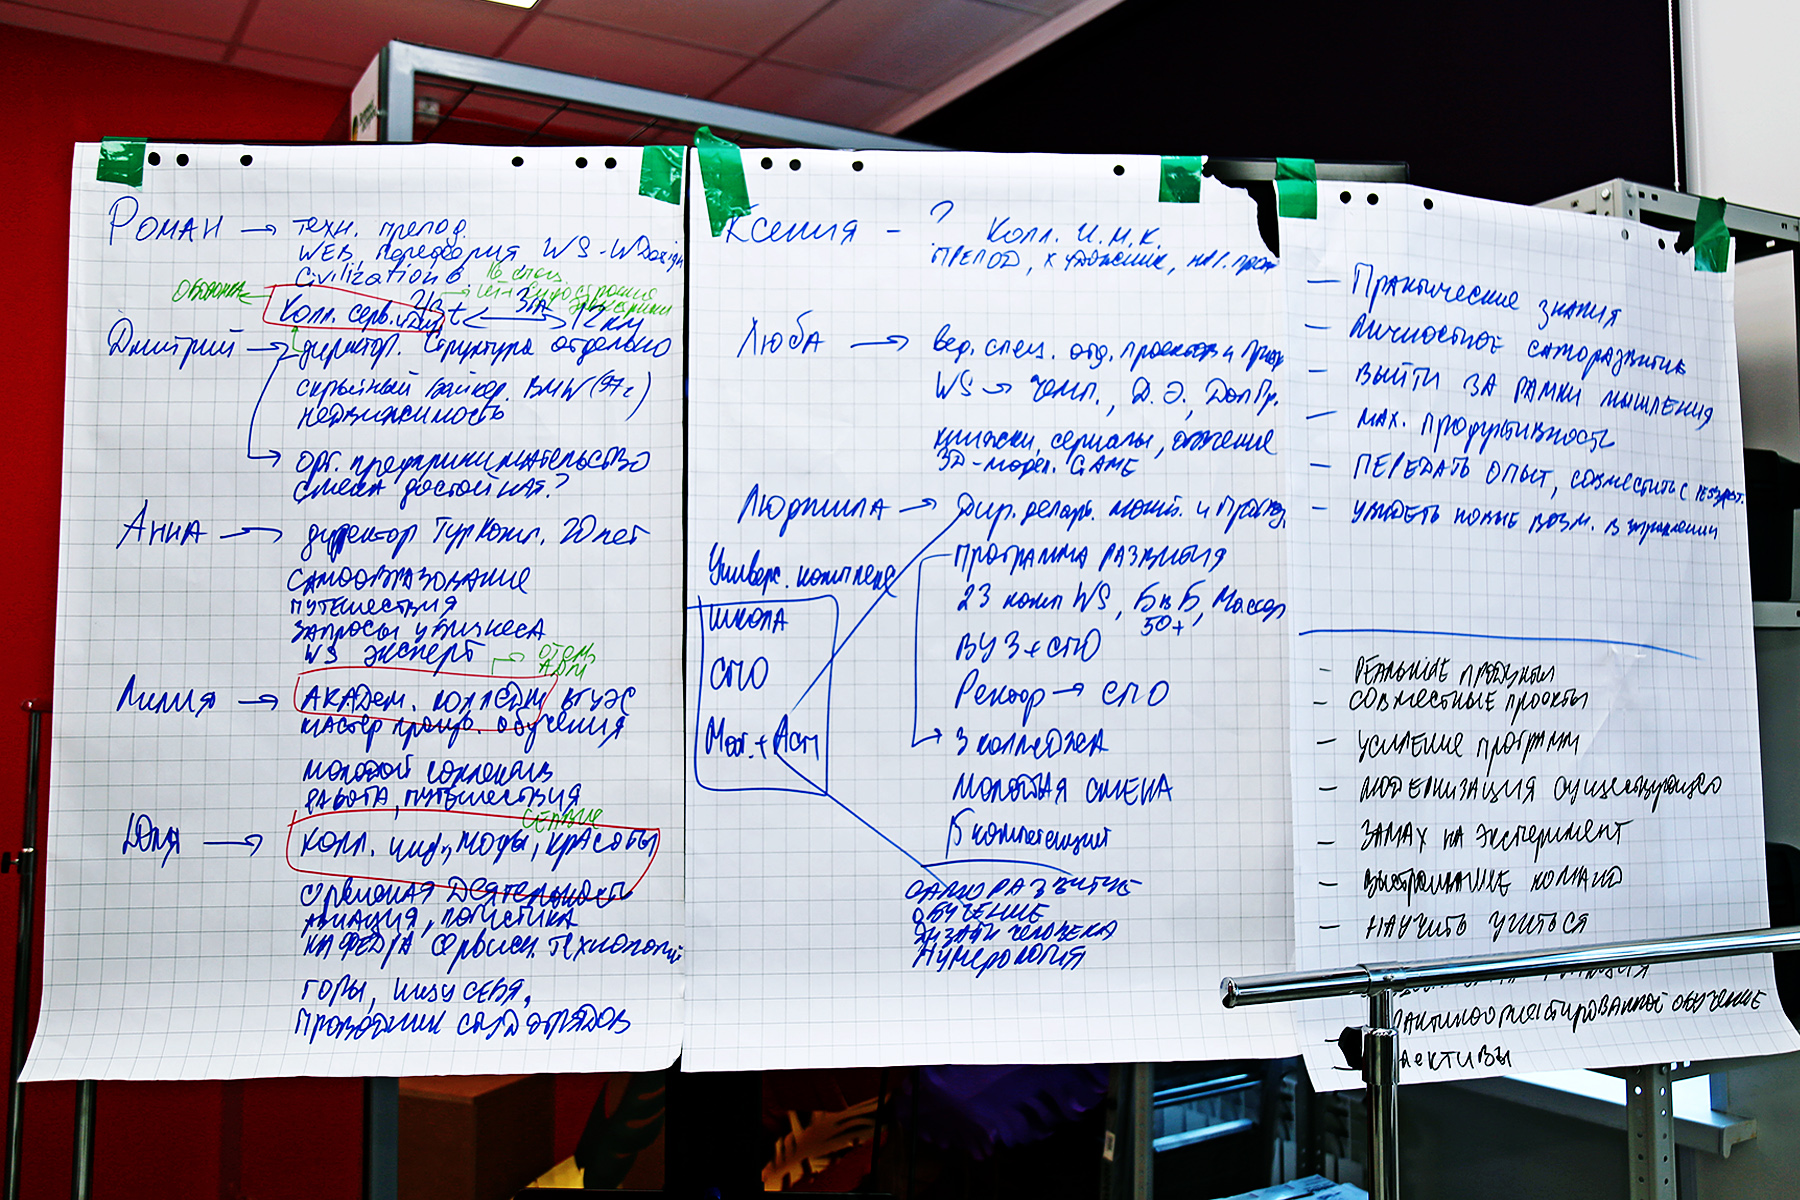 Роман → техн. препод.
WEB, WS - WDesign
Civilization 6
16 спец.
Колл. серв.
12 км
Дмитрий → директор. Структура отдельно
байкер. BMW (97 г)
недвижимость
орг. предпринимательство
смена достойная?
Анна → директор Тур Комп. 20 лет
самообразование
путешествия
запросы у бизнеса
WS эксперт
отель
Лилия → Академ. колледж ВГУЭС
мастер произв. обучения
молодой
работа, путешествия
сервис
Юля → Колл. инд., моды, красоты
сервисная деятельность
авиация, логистика
кафедра сервисн. технологий
горы, ищу себя,
проводник студ отрядов
Ксения - ? Колл. И.М.К.
препод, художник,
Люба → вед. спец. отд. проектов и
WS → чемп., Д.Э., Доп Пр.
книжки, сериалы,
3D-модел. GAME
Людмила → Дир. депар.
Универс. комплекс
школа
СПО
Маг. + Асп
программа развития
23 комп WS,
50+
ВУЗ + СПО
Ректор → СПО
3 колледжа
молодая смена
компетенций
саморазвитие
обучение
дизайн человека
нумерология
- Практические знания
- личностное саморазвитие
- выйти за рамки мышления
- мах. продуктивность
- передать опыт, совместить с
- увидеть новые возм. в управлении
- реальные продукты
- совместные проекты
- усиление программ
- модернизация существующего
- замах на эксперимент
- выстраивание команд
- научить учиться
обучение